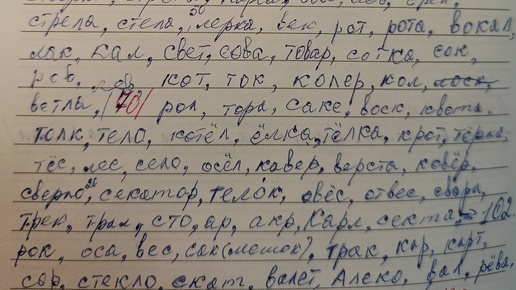 стрела, стела, 50 лерка, век, рот, рота, вокал,
лак, кал, свет, сова, товар, сотка, сок,
рёв, лов, кот, ток, колер, кол, лоск,
ветла, (70) рол, тора, саке, воск, квота,
толк, тело, котёл, ёлка, тёлка, крот, тёрка,
тёс, лес, село, осёл, кавер, верста, ковёр,
сверло, секатор, телок, овёс, отвес, свора,
трек, трал, сто, ар, акр, Карл, секта = 102
рок, оса, вес, сак (мешок), трак, кар, карт,
сор, стекло, скат, валет, Алеко, вал, рёва,